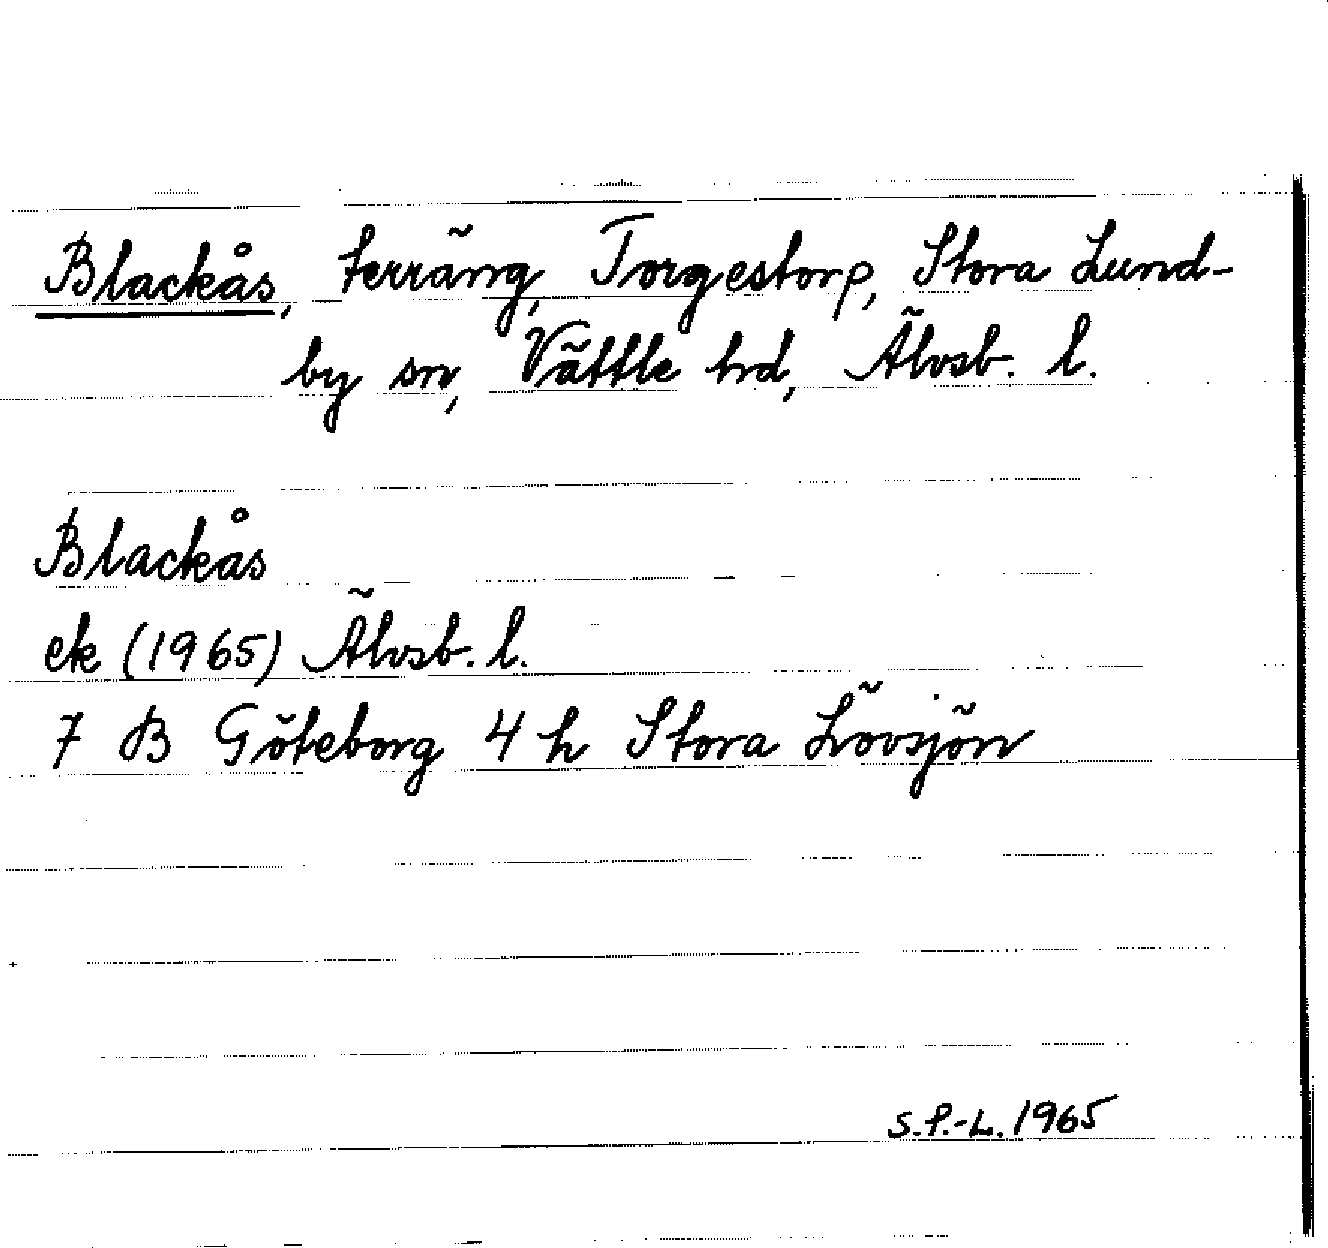 Blackås, terräng, Torgestorp, Stora Lund-
by sn, Vättle hd, Älvsb. l.
Blackås
ek (1965) Älvsb. l.
7 B Göteborg 4 h Stora Lövsjön
S.P.-L. 1965